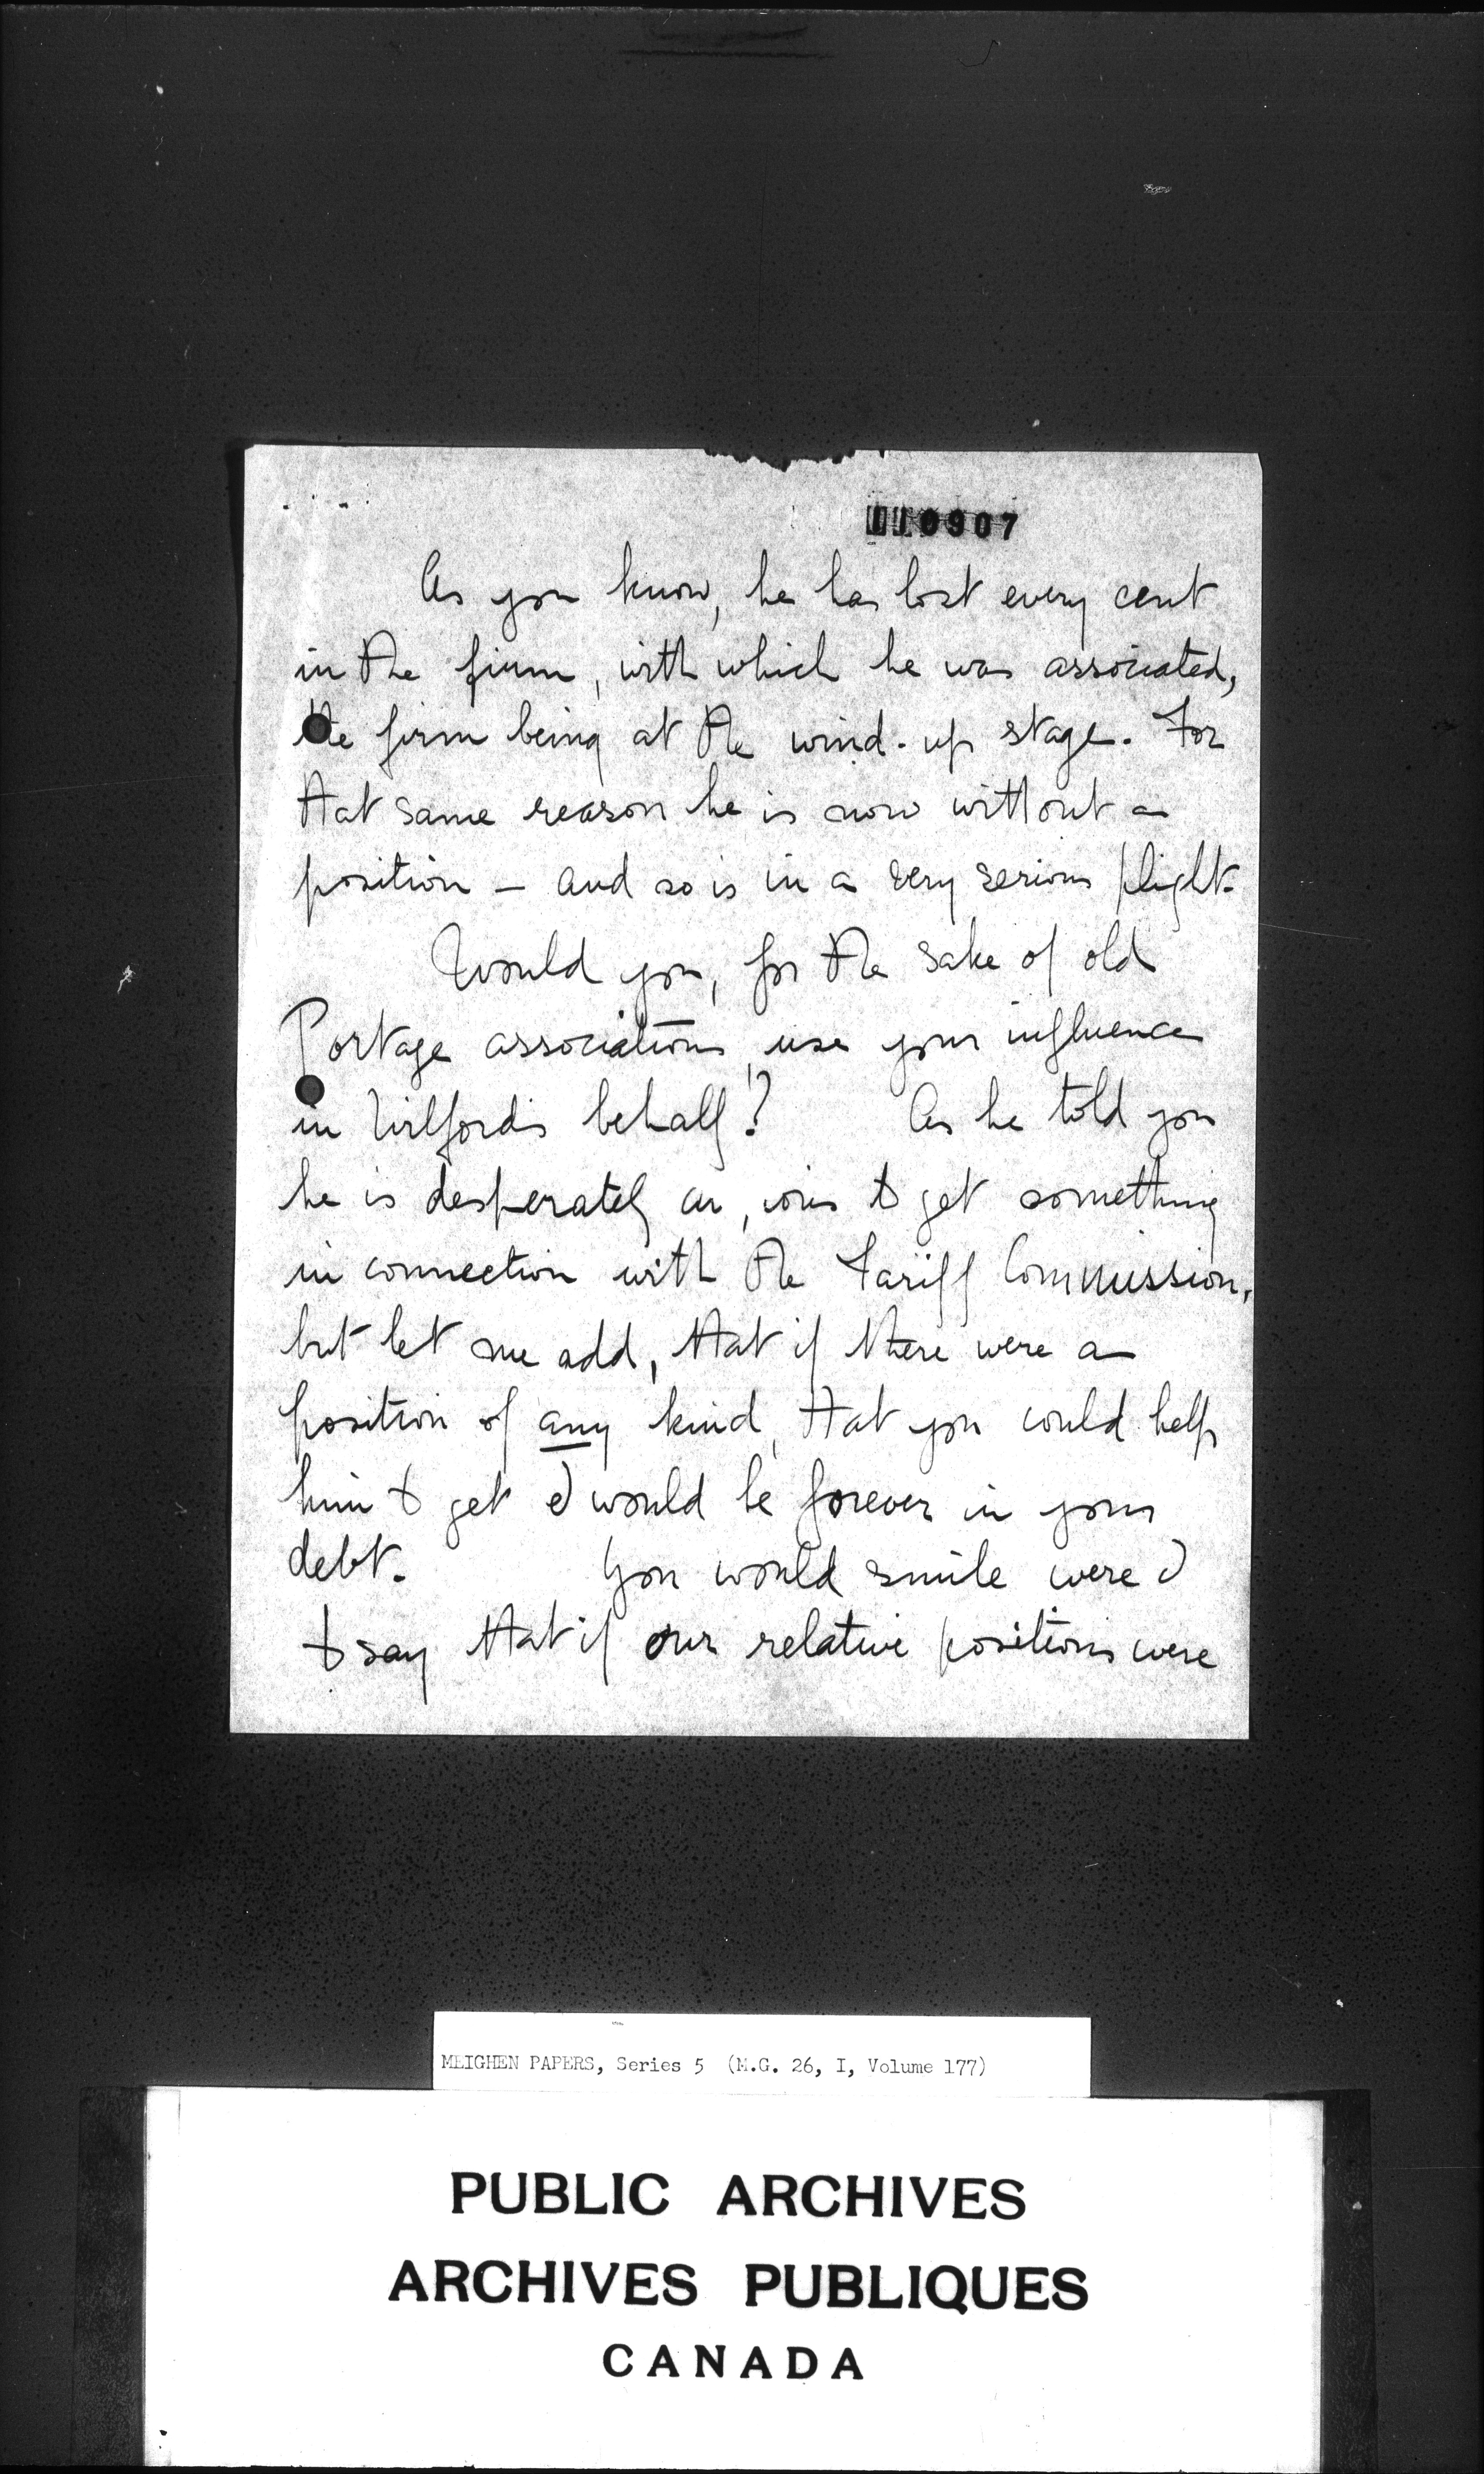 110907
As you know, he has lost every cent
in the firm, with which he was associated,
the firm being at the wind-up stage. For
that same reason he is now without a
position – and so is in a very serious plight.
Would you, for the sake of old
Portage associations, use your influence
in Wilford's behalf? As he told you
he is desperately anxious to get something
in connection with the Tariff Commission,
but let me add, that if there were a
position of any kind, that you could help
him to get I would be forever in your
debt. You would smile were I
to say that if our relative positions were
MEIGHEN PAPERS, Series 5 (M.G. 26, I, Volume 177)
PUBLIC ARCHIVES
ARCHIVES PUBLIQUES
CANADA